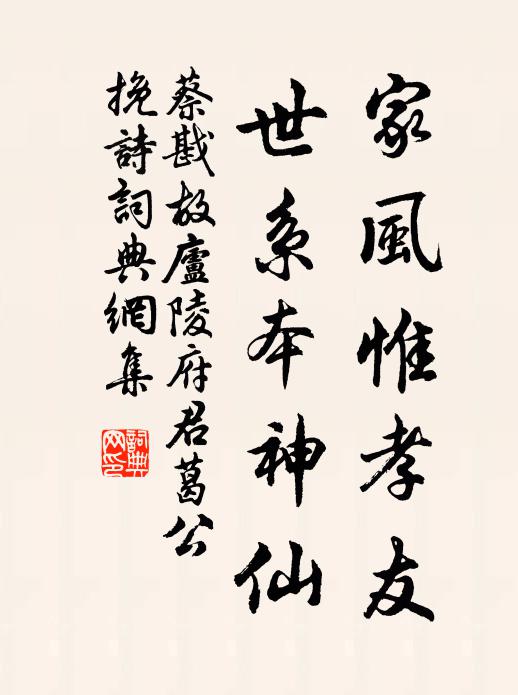 家風惟孝友
世系本神仙
蔡戡故廬陵府君葛公
挽詩詞典網集
詞典網印